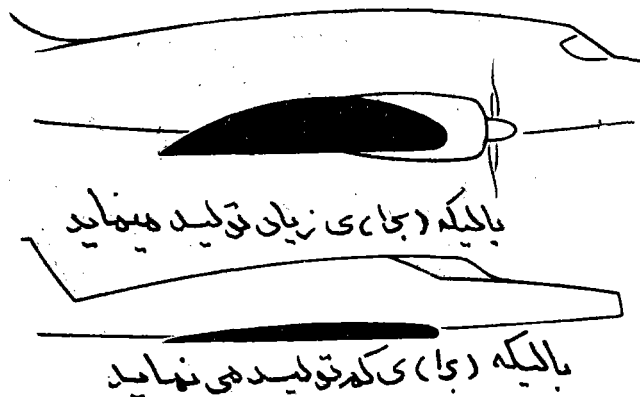 بالیکه (برا)ی زیاد تولید مینماید
بالیکه (برا)ی کم تولید می نماید